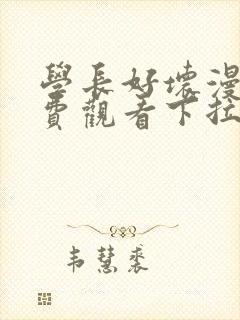 學長好壞漫
費觀看下拉
韦慧裘